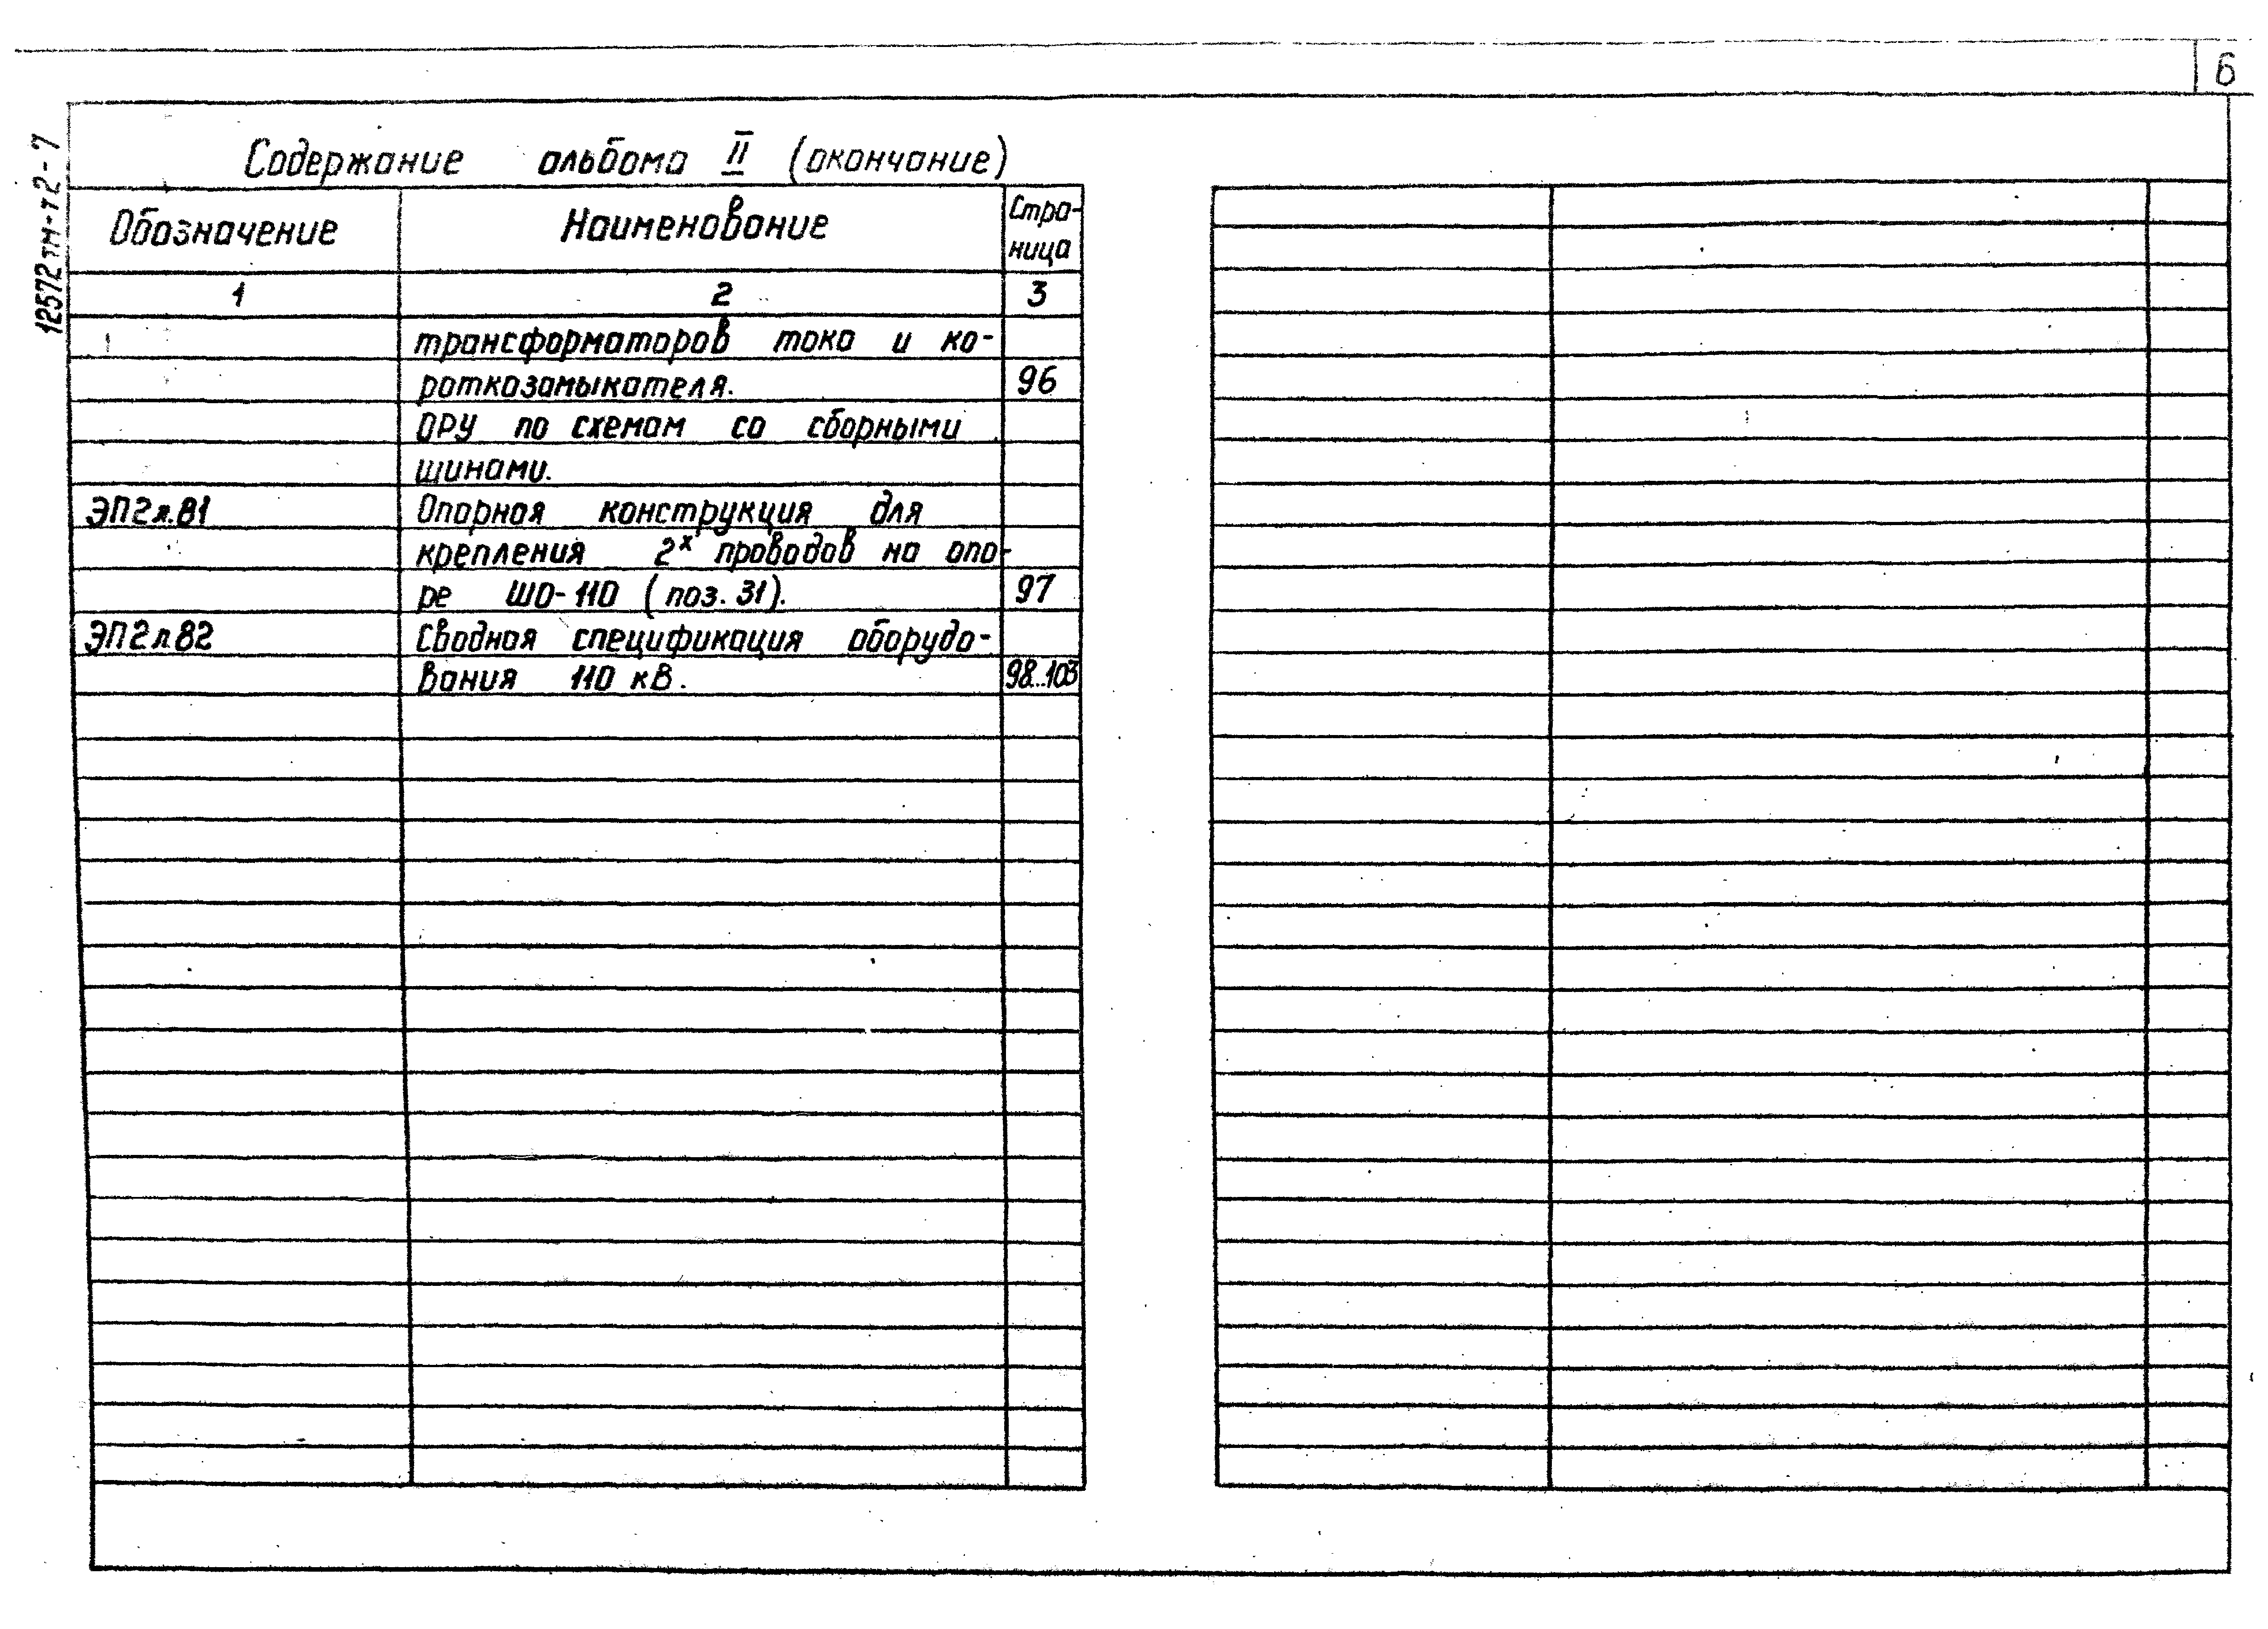 6
12572тм-т2-7
Содержание альбома II (окончание)
Обозначение Наименование Стра-
ница
1 2 3
трансформаторов тока и ко-
роткозамыкателя. 96
ОРУ по схемам со сборными
шинами.
ЭП2л.81 Опорная конструкция для
крепления 2х проводов на опо-
ре ШО-110 (поз. 31). 97
ЭП2л82 Сводная спецификация оборудо-
вания 110 кВ. 98...103